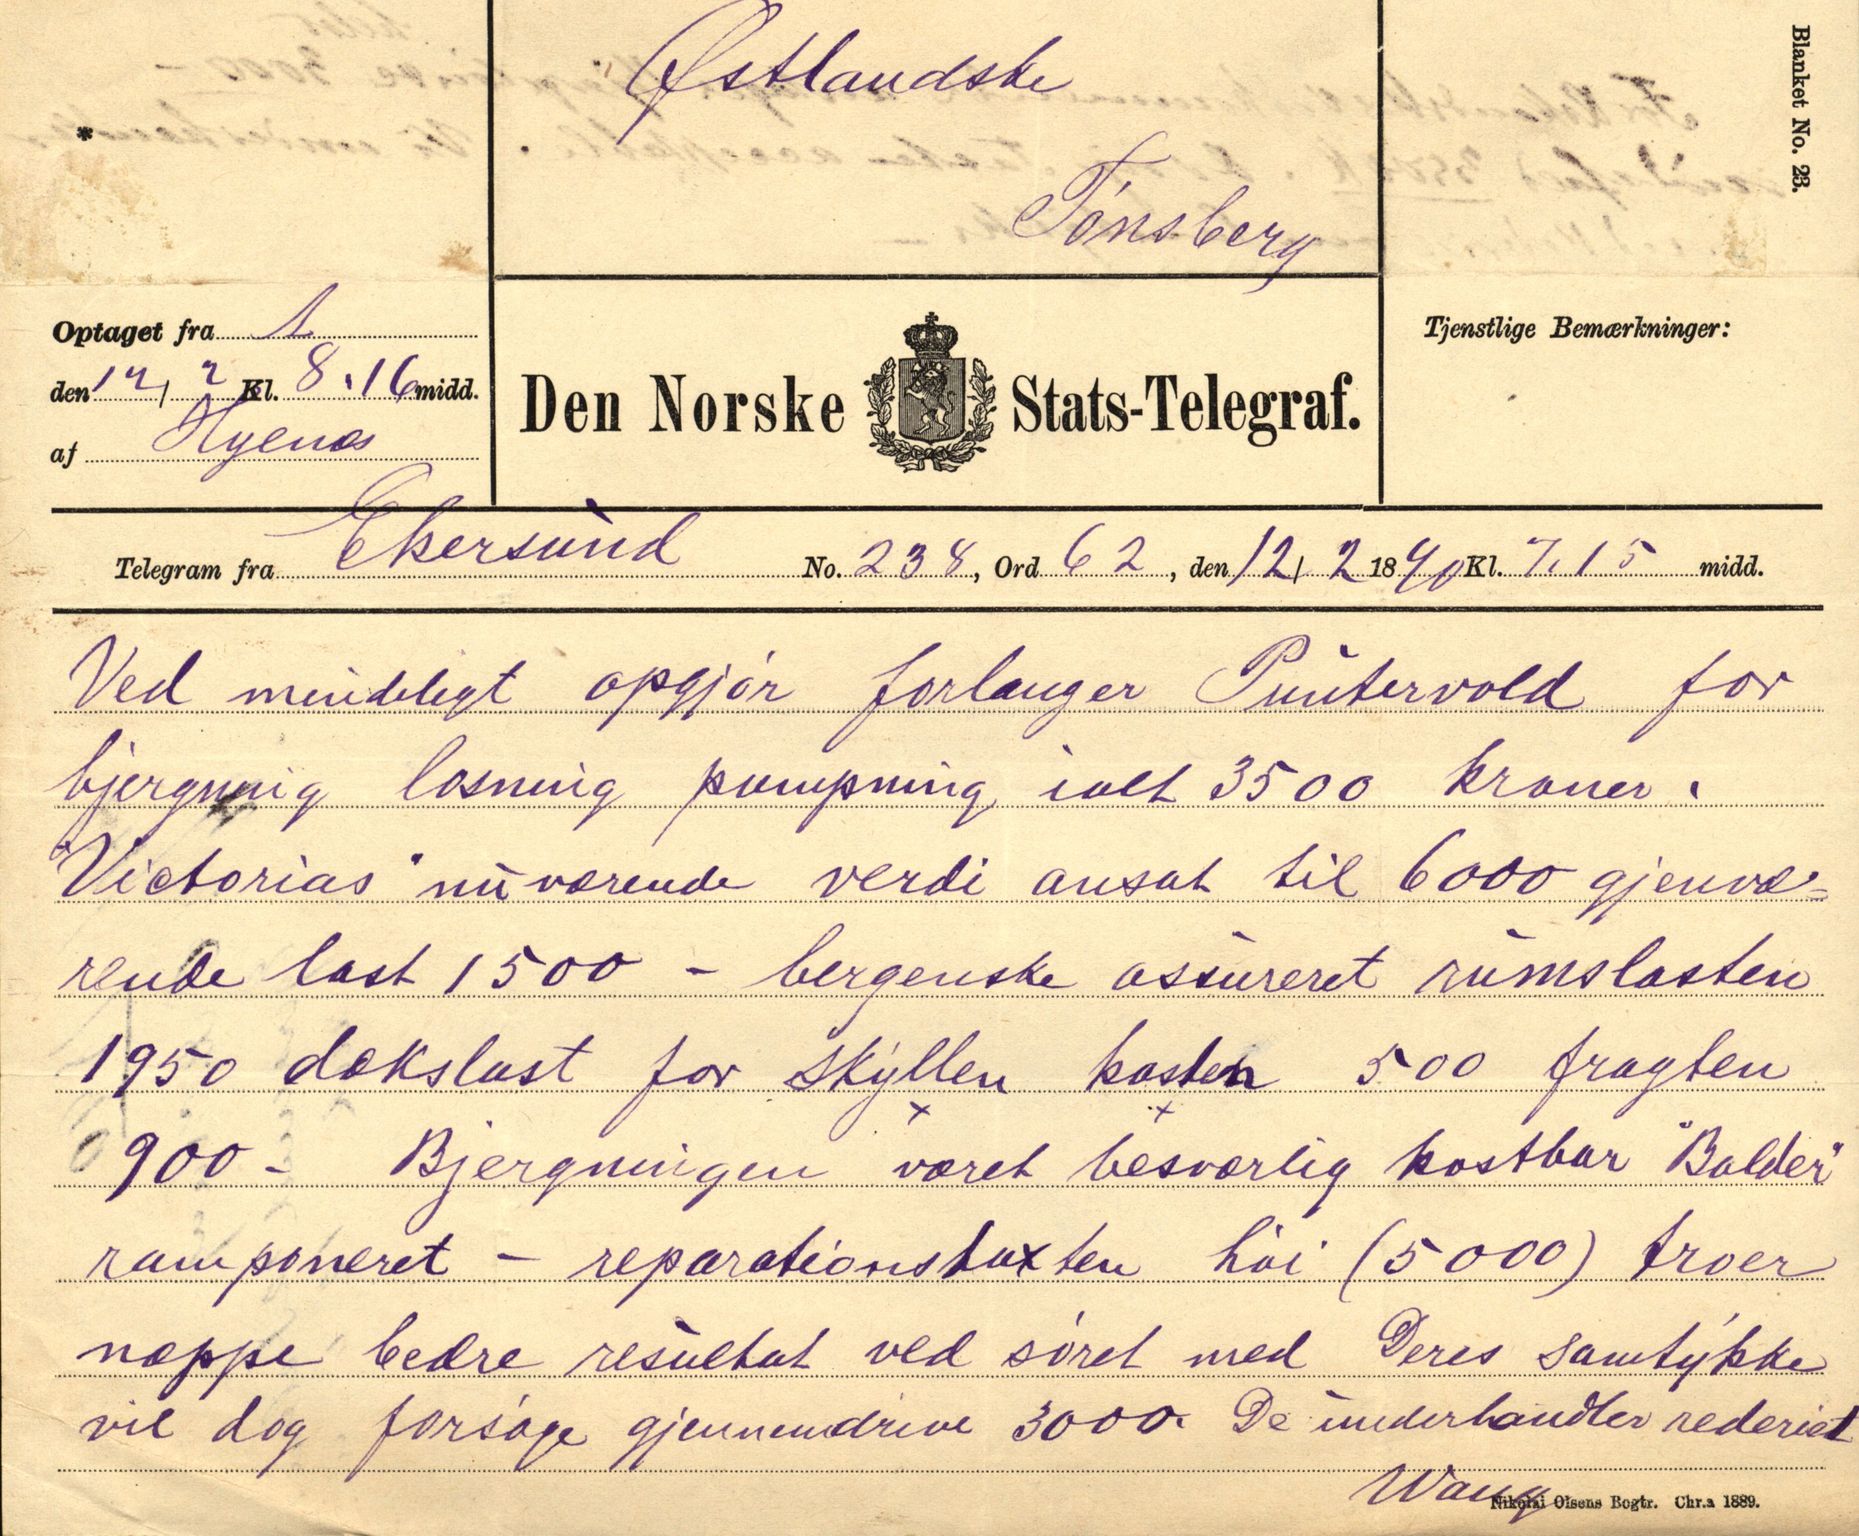 Østlandske
Tønsberg
Blanket No. 23.
Optaget fra A
den 12/2 Kl. 8.16 midd.
af Hyenes
Den Norske Stats-Telegraf.
Tjenstlige Bemærkninger:
Telegram fra Ekersund No. 238, Ord 62, den 12/2 1890 Kl. 7.15 midd.
Ved mindeligt opgjør forlanger Puntervold for
bjergning losning pumpning ialt 3500 kroner.
"Victorias" nuværende verdi ansat til 6000 gjenvæ-
rende last 1500 - bergenske assureret rumslasten
1950 dækslast for Skyllen kosten 500 fragten
900 - Bjergningen været besværlig kostbar "Balder"
ramponeret - reparationstaxten høi (5000) troer
næppe bedre resultat ved søret med Deres samtykke
vil dog forsøge gjennemdrive 3000. De underhandler rederiet
Wang
Nikolai Olsens Bogtr. Chr.a 1889.